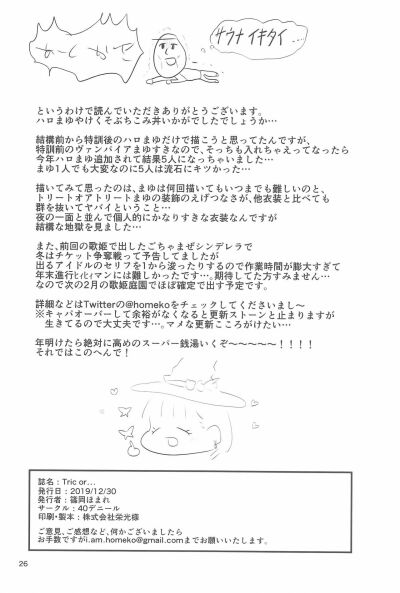 サウナイキタイ…
というわけで読んでいただきありがとうございます。
ハロまゆやけくそぶちこみ丼いかがでしたでしょうか…
結構前から特訓後のハロまゆだけで描こうと思ってたんですが、
特訓前のヴァンパイアまゆすきなので、そっちも入れちゃえってなったら
今年ハロまゆ追加されて結果5人になっちゃいました…
まゆ1人でも大変なのに5人は流石にキツかった…
描いてみて思ったのは、まゆは何回描いてもいつまでも難しいのと、
トリートオアトリートまゆの装飾のえげつなさが、他衣装と比べても
群を抜いてヤバイということ…
夜の一面と並んで個人的にかなりすきな衣装なんですが
結構な地獄を見ました…
また、前回の歌姫で出したごちゃまぜシンデレラで
冬はチケット争奪戦って予告してましたが
出るアイドルのセリフを1から浚ったりするので作業時間が膨大すぎて
年末進行ヒィヒィマンには難しかったです…期待してた方すみません…
なので次の2月の歌姫庭園でほぼ確定で出す予定です。
詳細などはTwitterの@homekoをチェックしてくださいまし～
※キャパオーバーして余裕がなくなると更新ストーンと止まりますが
生きてるので大丈夫です…。マメな更新こころがけたい…
年明けたら絶対に高めのスーパー銭湯いくぞ～～～～～！！！！
それではこのへんで！
誌名：Tric or...
発行日：2019/12/30
発行者：篠岡ほまれ
サークル：40デニール
印刷・製本：株式会社栄光様
ご意見、ご感想など、何かございましたら
お手数ですがi.am.homeko@gmail.comまでお願いいたします。
26